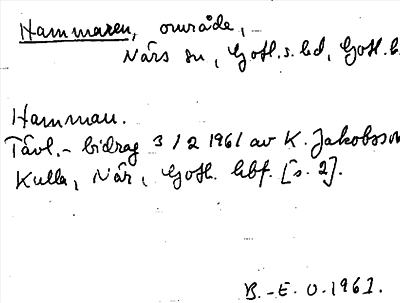 Hammaren, område,
Närs sn, Gotl. s. hd, Gotl. l.
Hamman.
Tävl.-bidrag 3/2 1961 av K. Jakobsson
Kulla, När, Gotl. hbf. [s. 2].
B.-E. O. 1961.